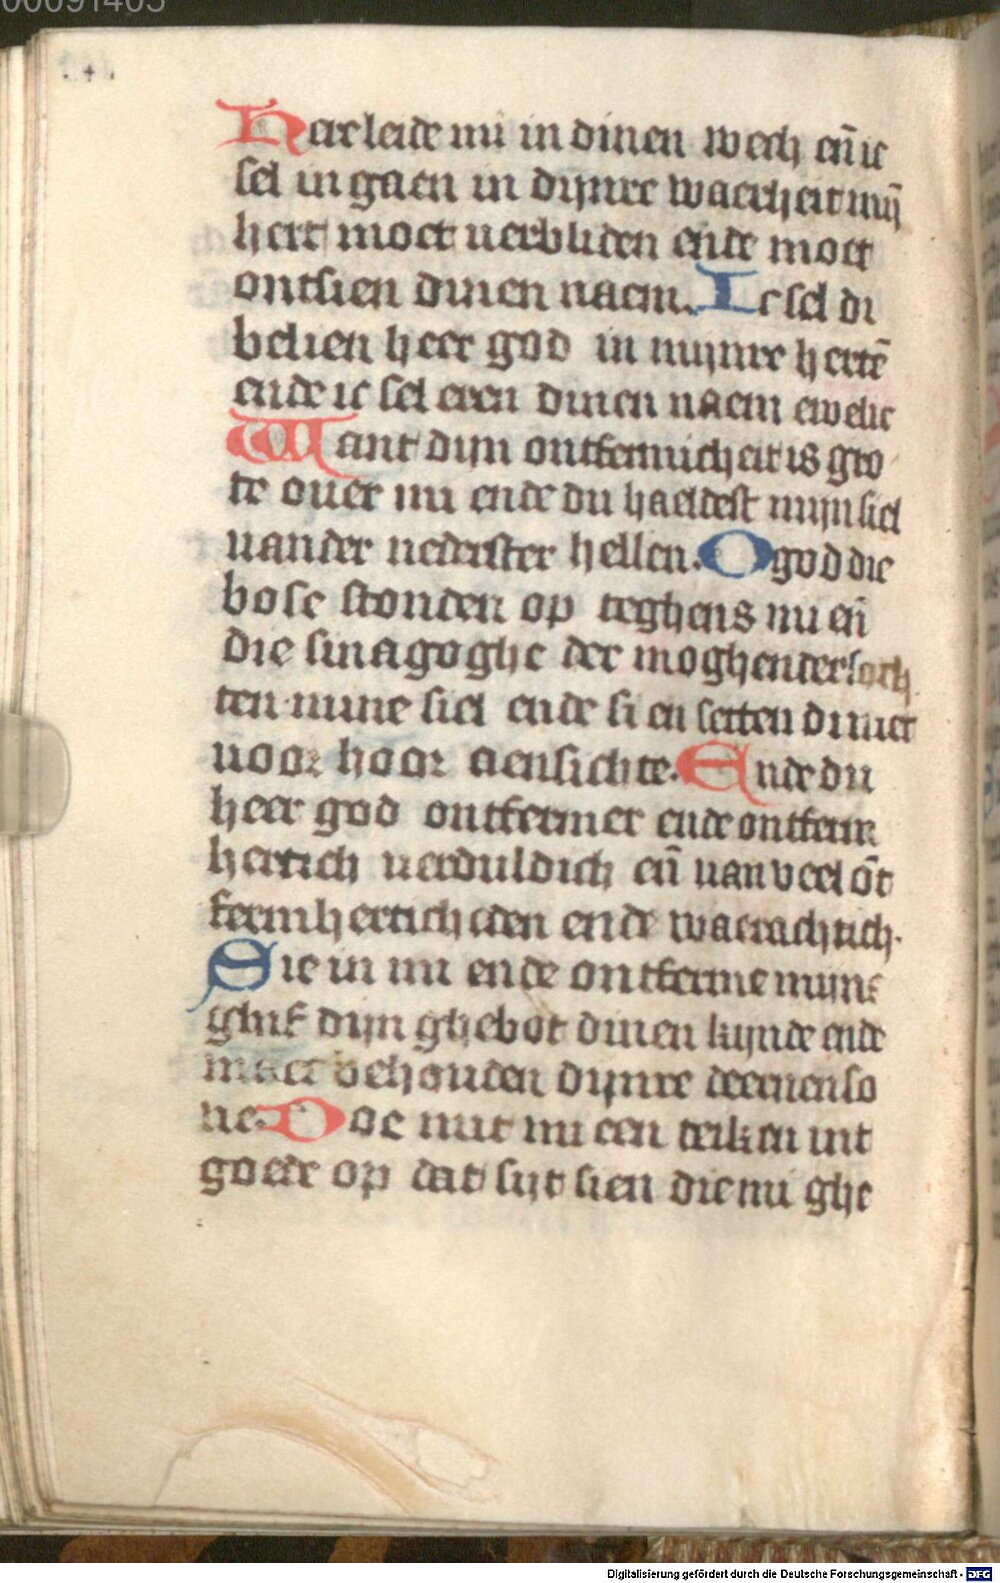 00091405
Heer leide mi in dinen wech en̄ ic
sel in gaen in dijnre waerheit mij̄
hert moet verbliden ende moet
ontsien dinen naem. Ic sel di
belien heer god in mijnre hertē
ende ic sel eren dinen naem ewelic
Want dijn ontfermicheit is gro
te ouer mi ende du haeldest mijn siel
uander nederster hellen. O god die
bose stonden op teghens mi en̄
die sinagoghe der moghender soch
ten mine siel ende si en setten di niet
uoor hoor aensichte. Ende du
heer god ontfermer ende ontferm
hertich uerduldich en̄ van veel ōt
fermherticheden ende waerachtich.
Sie in mi ende ontferme mijns
ghif dijn ghebot dinen kijnde ende
maect behouden dijnre deernen so
ne. Doe mit mi een teiken int
goede op dat sijt sien die mi ghe
Digitalisierung gefördert durch die Deutsche Forschungsgemeinschaft - DFG